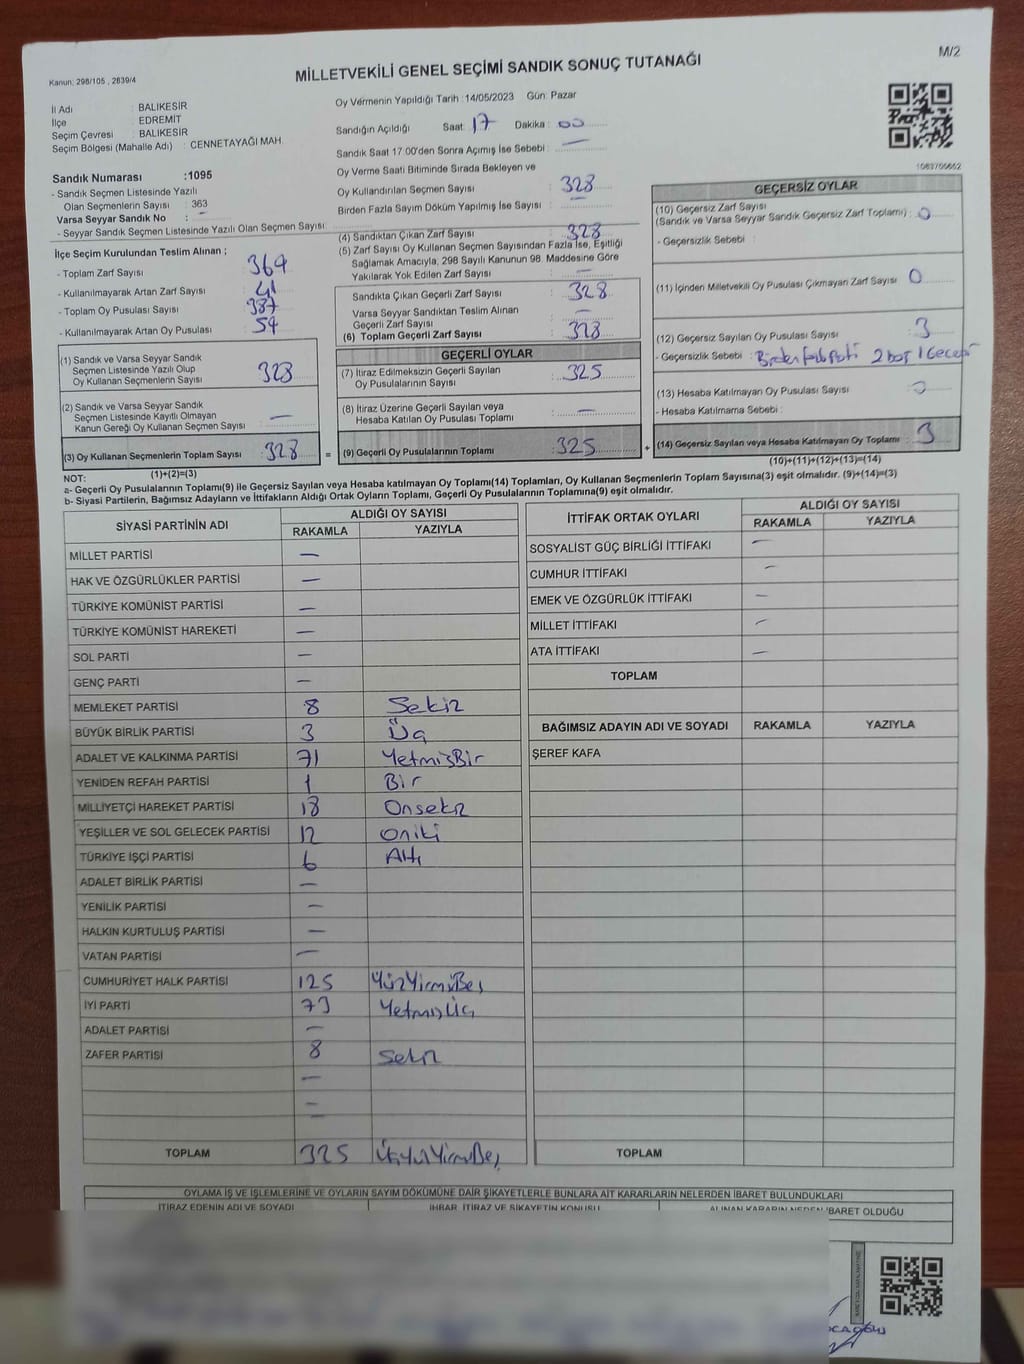 Kanun: 298/105 , 2839/4
MİLLETVEKİLİ GENEL SEÇİMİ SANDIK SONUÇ TUTANAĞI
M/2
İl Adı : BALIKESİR
İlçe : EDREMİT
Seçim Çevresi : BALIKESİR
Seçim Bölgesi (Mahalle Adı) : CENNETAYAĞI MAH.
Oy Vermenin Yapıldığı Tarih :14/05/2023 Gün: Pazar
Sandığın Açıldığı Saat: 17 Dakika : 00
Sandık Saat 17:00'den Sonra Açımış İse Sebebi : —
Oy Verme Saati Bitiminde Sırada Bekleyen ve
Oy Kullandırılan Seçmen Sayısı : 328
Birden Fazla Sayım Döküm Yapılmış İse Sayısı : —
1083706662
Sandık Numarası :1095
- Sandık Seçmen Listesinde Yazılı
Olan Seçmenlerin Sayısı : 363
Varsa Seyyar Sandık No : —
- Seyyar Sandık Seçmen Listesinde Yazılı Olan Seçmen Sayısı:
İlçe Seçim Kurulundan Teslim Alınan ;
- Toplam Zarf Sayısı : 364
- Kullanılmayarak Artan Zarf Sayısı : 41
- Toplam Oy Pusulası Sayısı : 387
- Kullanılmayarak Artan Oy Pusulası : 59
(1) Sandık ve Varsa Seyyar Sandık
Seçmen Listesinde Yazılı Olup
Oy Kullanan Seçmenlerin Sayısı : 328
(2) Sandık ve Varsa Seyyar Sandık
Seçmen Listesinde Kayıtlı Olmayan
Kanun Gereği Oy Kullanan Seçmen Sayısı : —
(3) Oy Kullanan Seçmenlerin Toplam Sayısı : 328
(1)+(2)=(3)
(4) Sandıktan Çıkan Zarf Sayısı : 328
(5) Zarf Sayısı Oy Kullanan Seçmen Sayısından Fazla İse, Eşitliği
Sağlamak Amacıyla, 298 Sayılı Kanunun 98. Maddesine Göre
Yakılarak Yok Edilen Zarf Sayısı : —
Sandıkta Çıkan Geçerli Zarf Sayısı : 328
Varsa Seyyar Sandıktan Teslim Alınan
Geçerli Zarf Sayısı : —
(6) Toplam Geçerli Zarf Sayısı : 328
GEÇERLİ OYLAR
(7) İtiraz Edilmeksizin Geçerli Sayılan
Oy Pusulalarının Sayısı : 325
(8) İtiraz Üzerine Geçerli Sayılan veya
Hesaba Katılan Oy Pusulası Toplamı : —
= (9) Geçerli Oy Pusulalarının Toplamı : 325 +
GEÇERSİZ OYLAR
(10) Geçersiz Zarf Sayısı
(Sandık ve Varsa Seyyar Sandık Geçersiz Zarf Toplamı) : 0
- Geçersizlik Sebebi :
(11) İçinden Milletvekili Oy Pusulası Çıkmayan Zarf Sayısı : 0
(12) Geçersiz Sayılan Oy Pusulası Sayısı : 3
- Geçersizlik Sebebi : 2 boş 1
(13) Hesaba Katılmayan Oy Pusulası Sayısı : 0
- Hesaba Katılmama Sebebi :
(14) Geçersiz Sayılan veya Hesaba Katılmayan Oy Toplamı : 3
(10)+(11)+(12)+(13)=(14)
NOT:
a- Geçerli Oy Pusulalarının Toplamı(9) ile Geçersiz Sayılan veya Hesaba katılmayan Oy Toplamı(14) Toplamları, Oy Kullanan Seçmenlerin Toplam Sayısına(3) eşit olmalıdır. (9)+(14)=(3)
b- Siyasi Partilerin, Bağımsız Adayların ve İttifakların Aldığı Ortak Oyların Toplamı, Geçerli Oy Pusulalarının Toplamına(9) eşit olmalıdır.
SİYASİ PARTİNİN ADI ALDIĞI OY SAYISI
RAKAMLA YAZIYLA
MİLLET PARTİSİ —
HAK VE ÖZGÜRLÜKLER PARTİSİ —
TÜRKİYE KOMÜNİST PARTİSİ —
TÜRKİYE KOMÜNİST HAREKETİ —
SOL PARTİ —
GENÇ PARTİ —
MEMLEKET PARTİSİ 8 Sekiz
BÜYÜK BİRLİK PARTİSİ 3 Üç
ADALET VE KALKINMA PARTİSİ 71 YetmişBir
YENİDEN REFAH PARTİSİ 1 Bir
MİLLİYETÇİ HAREKET PARTİSİ 18 Onsekiz
YEŞİLLER VE SOL GELECEK PARTİSİ 12 oniki
TÜRKİYE İŞÇİ PARTİSİ 6 Altı
ADALET BİRLİK PARTİSİ —
YENİLİK PARTİSİ —
HALKIN KURTULUŞ PARTİSİ —
VATAN PARTİSİ —
CUMHURİYET HALK PARTİSİ 125 YüzYirmiBeş
İYİ PARTİ 73 YetmişÜç
ADALET PARTİSİ —
ZAFER PARTİSİ 8 Sekiz
—
—
—
TOPLAM 325 ÜçYüzYirmiBeş
İTTİFAK ORTAK OYLARI ALDIĞI OY SAYISI
RAKAMLA YAZIYLA
SOSYALİST GÜÇ BİRLİĞİ İTTİFAKI —
CUMHUR İTTİFAKI —
EMEK VE ÖZGÜRLÜK İTTİFAKI —
MİLLET İTTİFAKI —
ATA İTTİFAKI —
TOPLAM
BAĞIMSIZ ADAYIN ADI VE SOYADI RAKAMLA YAZIYLA
ŞEREF KAFA
TOPLAM
OYLAMA İŞ VE İŞLEMLERİNE VE OYLARIN SAYIM DÖKÜMÜNE DAİR ŞİKAYETLERLE BUNLARA AİT KARARLARIN NELERDEN İBARET BULUNDUKLARI
İTİRAZ EDENİN ADI VE SOYADI İHBAR, İTİRAZ VE ŞİKAYETİN KONUSU ALINAN KARARIN NEDEN İBARET OLDUĞU